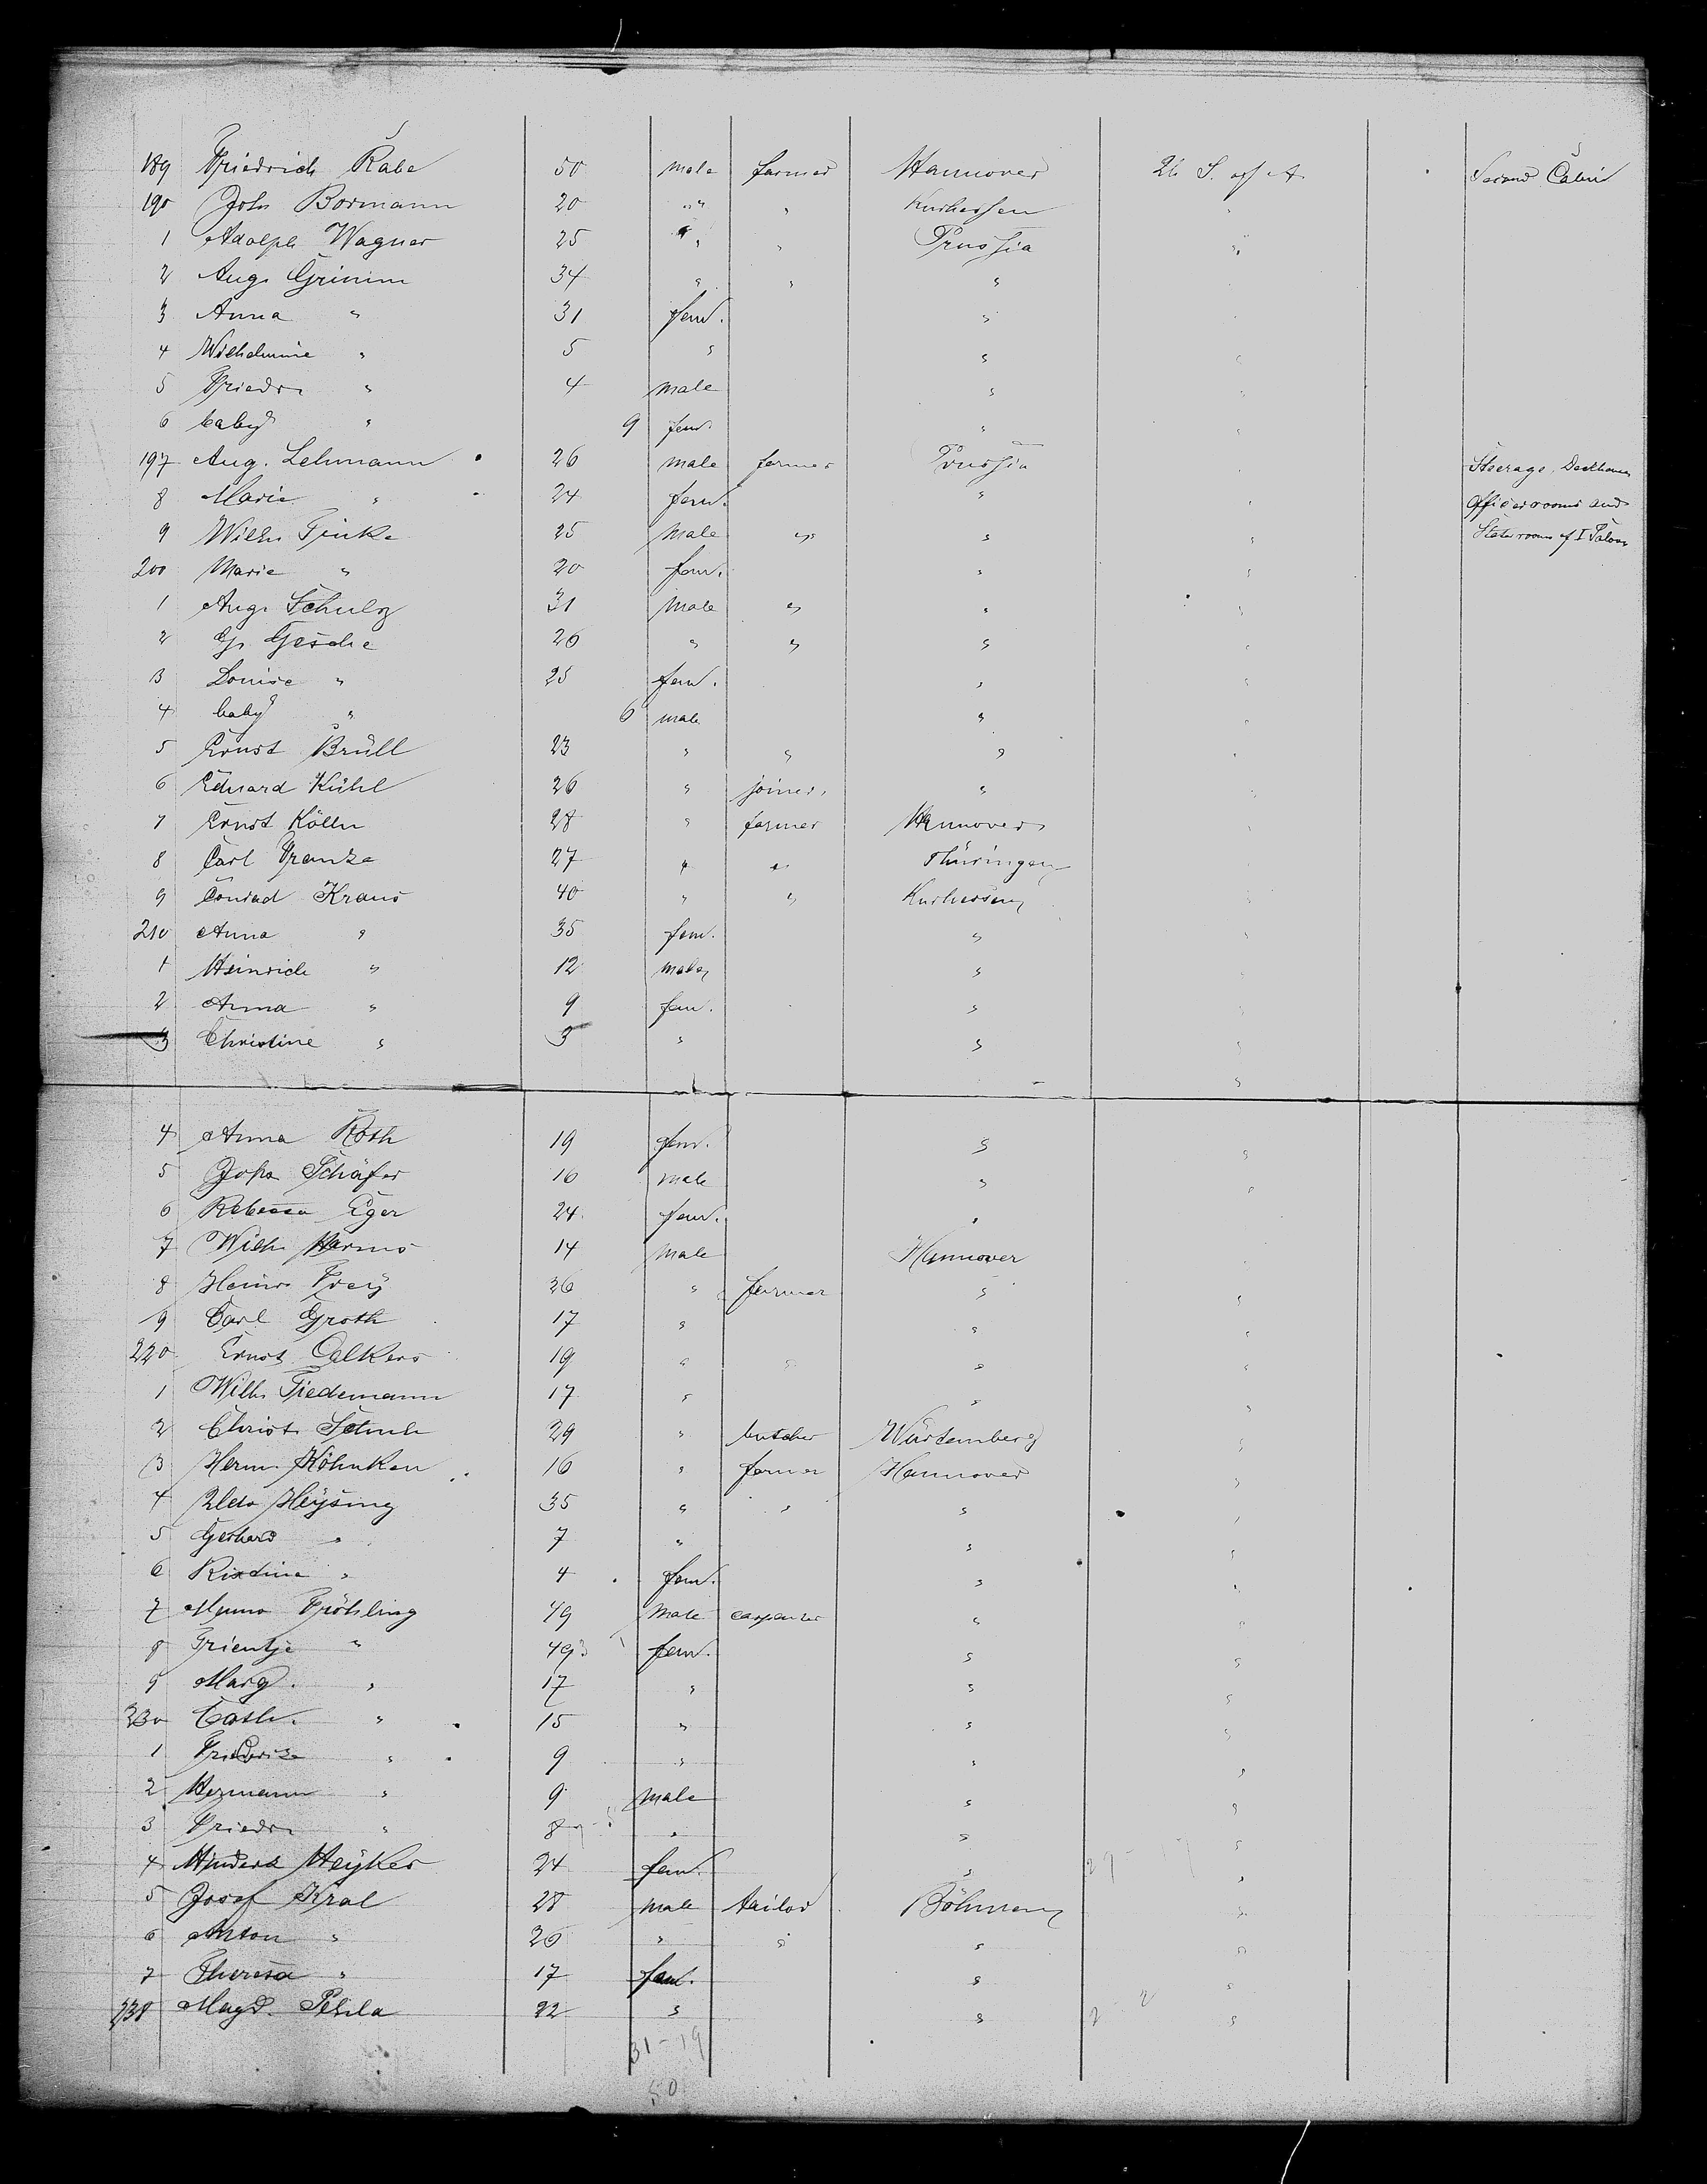 189 Friedrich Rabe 50 male farmer Hannover U. S. of A. Second Cabin
190 Joh. Bormann 20 " " Kurhessen "
1 Adolph Wagner 25 " " Prussia "
2 Aug. Grimm 34 " " "
3 Anna " 31 fem. "
4 Wilhelmine " 5 " " "
5 Friedr. " 4 male " "
6 baby " 9 fem. " "
197 Aug. Lehmann 26 male farmer Prussia Steerage, Deckhouse
8 Marie " 24 fem. " " Officerrooms and
9 Wilh. Finke 25 male " " " Staterooms of I Saloon
200 Marie " 20 fem. " "
1 Aug. Schulz 31 male " " "
2 G. Gesche 26 " " " "
3 Louise " 25 fem. " "
4 baby " 6 male " "
5 Ernst Brüll 23 " " " "
6 Eduard Kühl 26 " joiner "
7 Ernst Kölln 28 " farmer Hannover
8 Carl Franke 27 " " Thüringen
9 Conrad Kraus 40 " " Kurhessen "
210 Anna " 35 fem. " "
1 Heinrich " 12 male " "
2 Anna " 9 fem. " "
3 Christine " 3 " " "
4 Anna Roth 19 fem. " "
5 Johs. Schäfer 16 male " "
6 Rebecca Eger 24 fem. "
7 Wilh. Harms 14 male Hannover
8 Heinr. Frey 36 " farmer " "
9 Carl Groth 17 " " "
220 Ernst Oelkers 19 " " " "
1 Wilh. Tiedemann 17 " " "
2 Christ. Schuh 29 " butcher Würtemberg "
3 Herm. Köhnken 16 " farmer Hannover "
4 Heÿsing 35 " " " "
5 Gerhard " 7 " " "
6 4 fem. " "
7 Fröhling 49 male carpenter "
8 Trientje " 49 fem. " "
9 Marg. " 17 " " "
230 Cath. " 15 " " "
1 Friederike " 9 " " "
2 Hermann " 9 male " "
3 Friedr. " 8 " " "
4 Heÿkes 24 fem. " "
5 Josef Kral 28 male tailor Böhmen "
6 Anton " 26 " " " "
7 Theresa " 17 fem. " "
238 Magd. 22 " " "
31-19
50